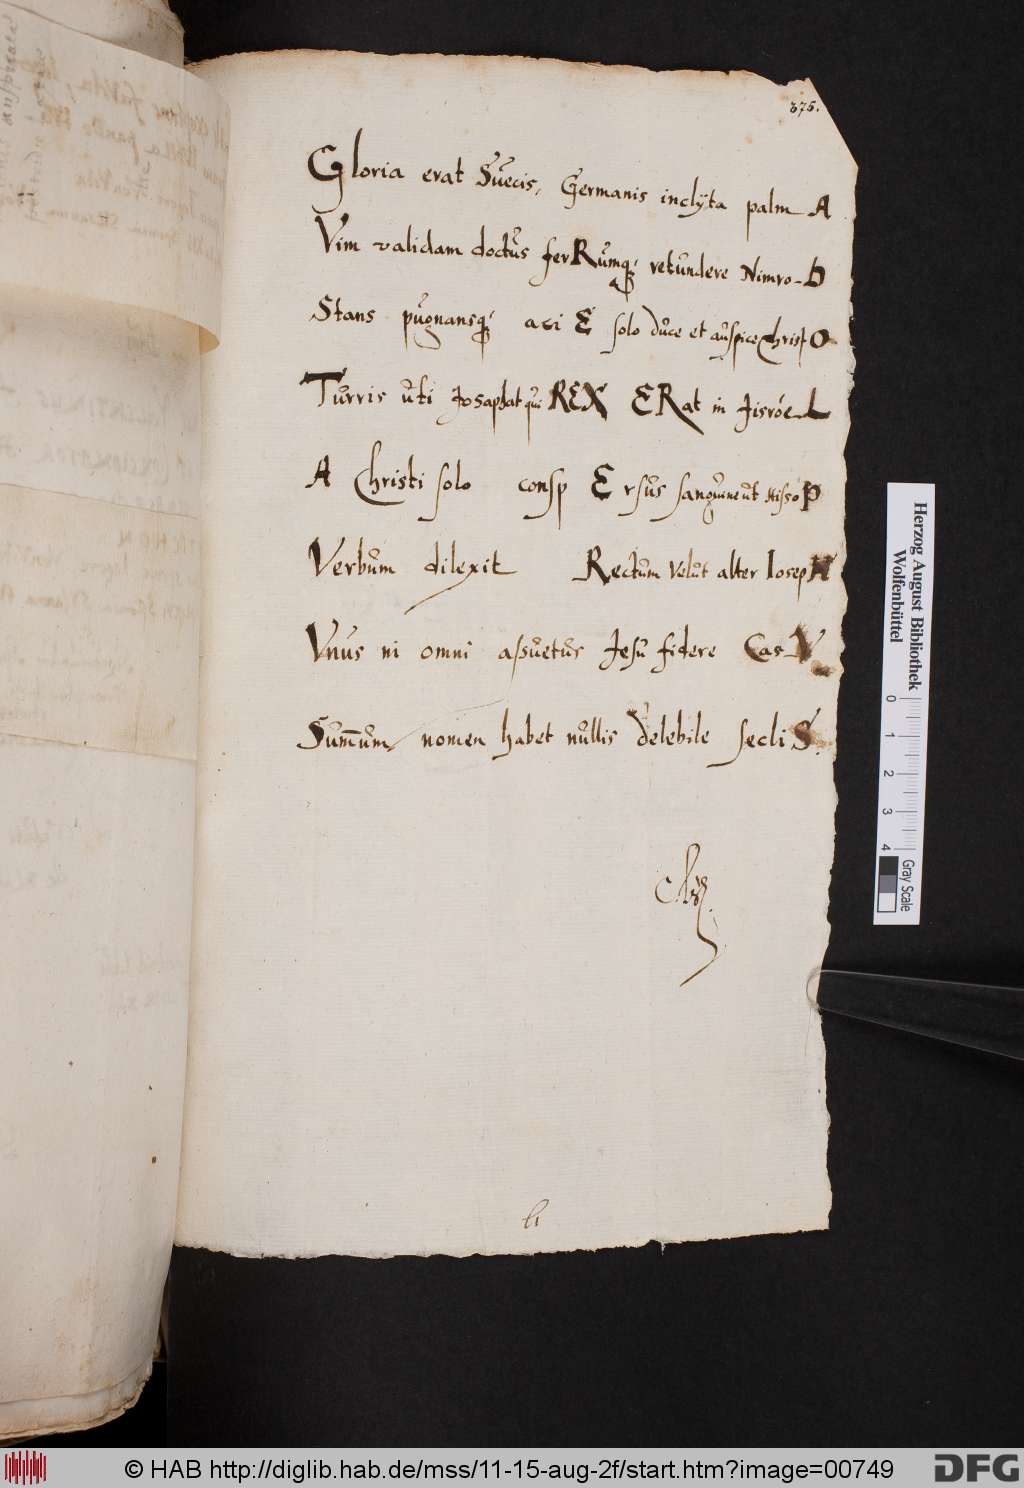 375.
Gloria erat Suecis, Germanis inclÿta palm A
Vim validam doctus ferRumq; retundere Nimro-D
Stans pugnansq; aci E solo duce et auspice Christ O
Turris uti Josaphat qui REX ERat in Jisróe L
A Christi solo consp E rsus sanguine ut Hissó P
Verbum dilexit Rectum velut alter Iosep H
Vnus ni omni assuetus Jesu fidere Cas V
Sum̄um nomen habet nullis delebile secli S.
Herzog August Bibliothek
Wolfenbüttel
0 1 2 3 4
Gray Scale
© HAB http://diglib.hab.de/mss/11-15-aug-2f/start.htm?image=00749
DFG